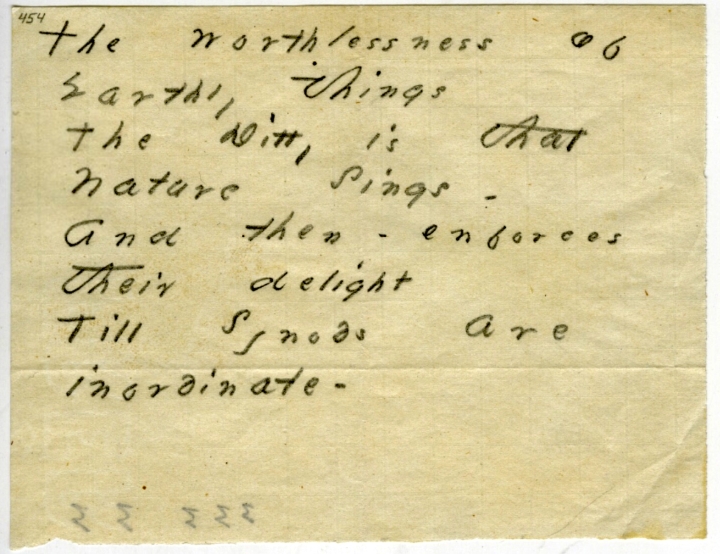 454
The worthlessness of
Earthly things
The Ditty is that
Nature Sings -
And then - enforces
their delight
Till Synods are
inordinate -